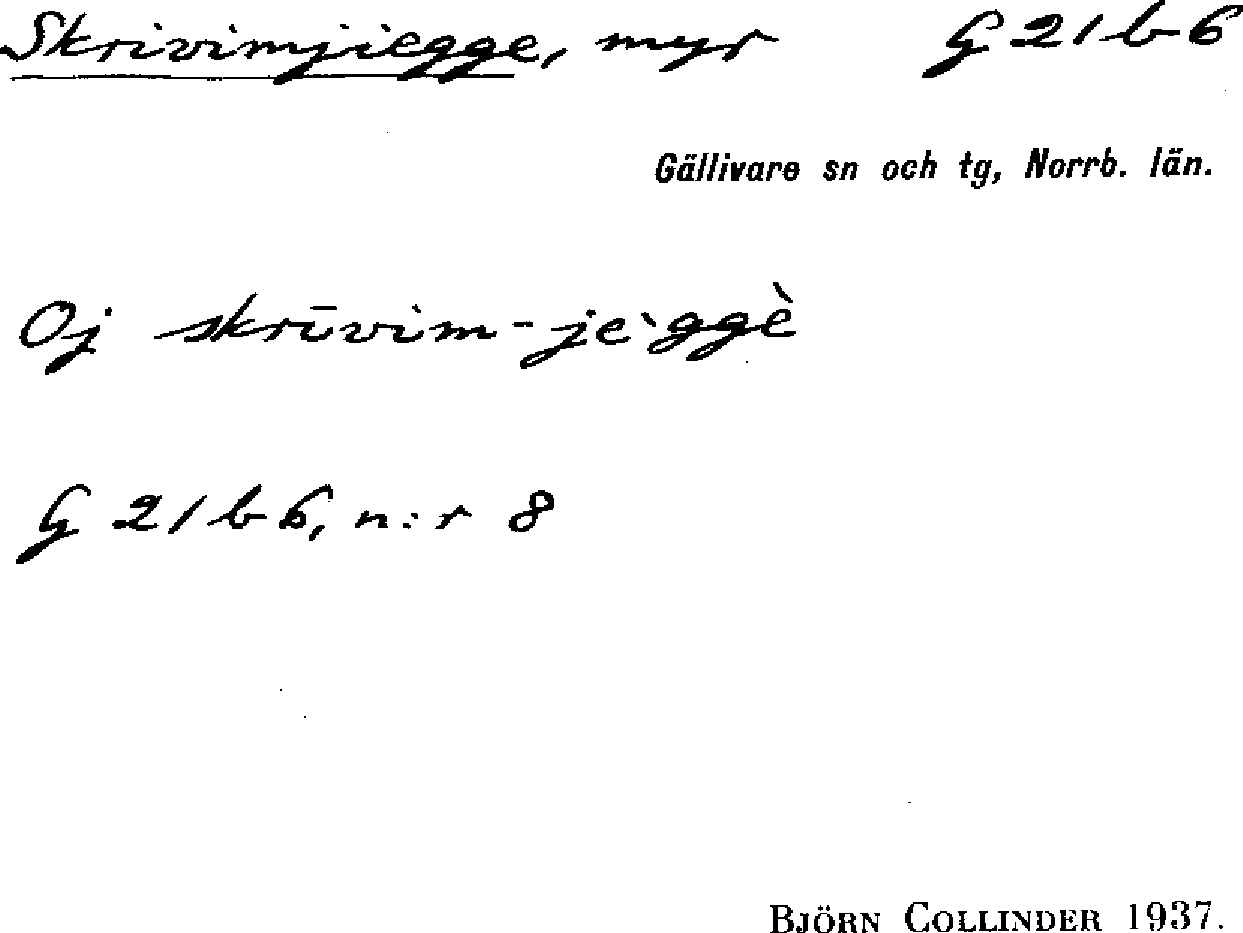 Skrivimjiegge, myr G 21 b 6
Gällivare sn och tg, Norrb. län.
Oj skrīvim-jeˋggè
G 21 b 6, n:r 8
BJÖRN COLLINDER 1937.